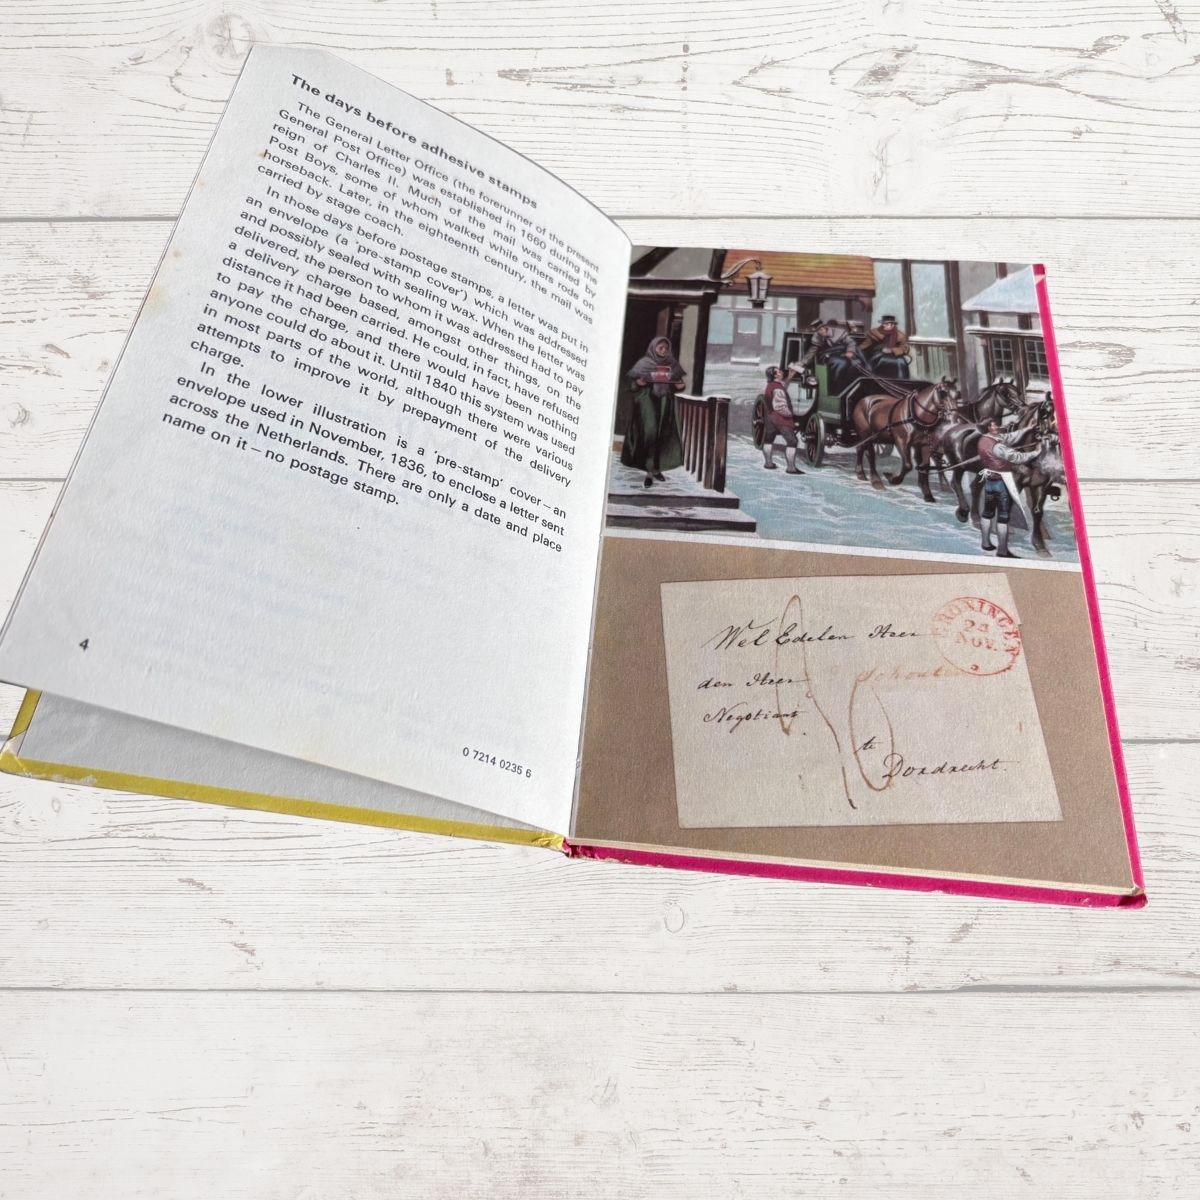 The days before adhesive stamps
The General Letter Office (the forerunner of the present
General Post Office) was established in 1660 during the
reign of Charles II. Much of the mail was carried by
Post Boys, some of whom walked while others rode on
horseback. Later, in the eighteenth century, the mail was
carried by stage coach.
In those days before postage stamps, a letter was put in
an envelope (a 'pre-stamp cover') which was addressed
and possibly sealed with sealing wax. When the letter was
delivered, the person to whom it was addressed had to pay
a delivery charge based, amongst other things, on the
distance it had been carried. He could, in fact, have refused
to pay the charge, and there would have been nothing
anyone could do about it. Until 1840 this system was used
in most parts of the world, although there were various
attempts to improve it by prepayment of the delivery
charge.
In the lower illustration is a 'pre-stamp' cover – an
envelope used in November, 1836, to enclose a letter sent
across the Netherlands. There are only a date and place
name on it – no postage stamp.
4
0 7214 0235 6
Wel Edelen Heer
den Heer Schouten
Negotiant
te
Dordrecht.
GRONINGEN
NOV.